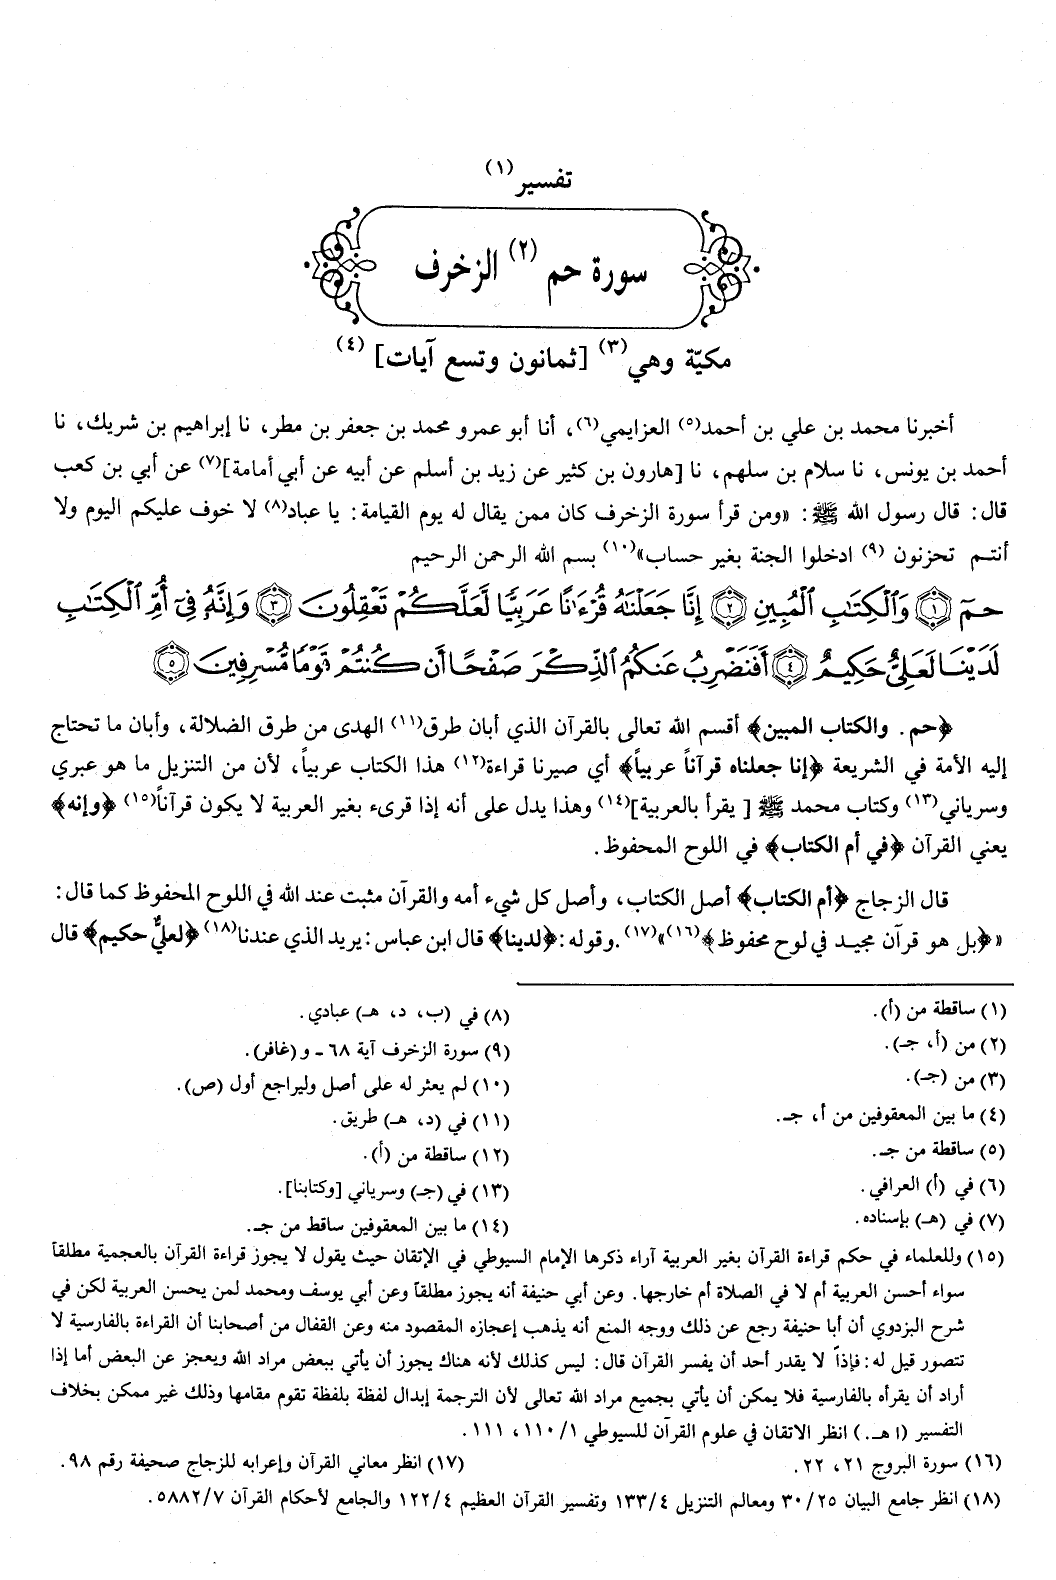 تفسير(١)
سورة حم (٢) الزخرف
مكيّة وهي(٣) [ثمانون وتسع آيات] (٤)
أخبرنا محمد بن علي بن أحمد(٥) العزايمي(٦)، أنا أبو عمرو محمد بن جعفر بن مطر، نا إبراهيم بن شريك، نا
أحمد بن يونس، نا سلام بن سلهم، نا [هارون بن كثير عن زيد بن أسلم عن أبيه عن أبي أمامة](٧) عن أبي بن كعب
قال: قال رسول الله ﷺ: «ومن قرأ سورة الزخرف كان ممن يقال له يوم القيامة: يا عباد(٨) لا خوف عليكم اليوم ولا
أنتم تحزنون (٩) ادخلوا الجنة بغير حساب»(١٠) بسم الله الرحمن الرحيم
حمٓ ١ وَٱلْكِتَٰبِ ٱلْمُبِينِ ٢ إِنَّا جَعَلْنَٰهُ قُرْءَٰنًا عَرَبِيًّا لَّعَلَّكُمْ تَعْقِلُونَ ٣ وَإِنَّهُۥ فِىٓ أُمِّ ٱلْكِتَٰبِ
لَدَيْنَا لَعَلِىٌّ حَكِيمٌ ٤ أَفَنَضْرِبُ عَنكُمُ ٱلذِّكْرَ صَفْحًا أَن كُنتُمْ قَوْمًا مُّسْرِفِينَ ٥
﴿حم. والكتاب المبين﴾ أقسم الله تعالى بالقرآن الذي أبان طرق(١١) الهدى من طرق الضلالة، وأبان ما تحتاج
إليه الأمة في الشريعة ﴿إنا جعلناه قرآناً عربياً﴾ أي صيرنا قراءة(١٢) هذا الكتاب عربياً، لأن من التنزيل ما هو عبري
وسرياني(١٣) وكتاب محمد ﷺ [ يقرأ بالعربية](١٤) وهذا يدل على أنه إذا قرىء بغير العربية لا يكون قرآناً(١٥) ﴿وإنه﴾
يعني القرآن ﴿في أم الكتاب﴾ في اللوح المحفوظ.
قال الزجاج ﴿أم الكتاب﴾ أصل الكتاب، وأصل كل شيء أمه والقرآن مثبت عند الله في اللوح المحفوظ كما قال:
«﴿بل هو قرآن مجيد في لوح محفوظ﴾(١٦)»(١٧). وقوله: ﴿لدينا﴾ قال ابن عباس: يريد الذي عندنا(١٨) ﴿لعليٌّ حكيم﴾ قال
(١) ساقطة من (أ).
(٢) من (أ، جـ).
(٣) من (جـ).
(٤) ما بين المعقوفين من أ، جـ.
(٥) ساقطة من جـ.
(٦) في (أ) العرافي.
(٧) في (هـ) بإسناده.
(٨) في (ب، د، هـ) عبادي.
(٩) سورة الزخرف آية ٦٨ - و (غافر).
(١٠) لم يعثر له على أصل وليراجع أول (ص).
(١١) في (د، هـ) طريق.
(١٢) ساقطة من (أ).
(١٣) في (جـ) وسرياني [وكتابنا].
(١٤) ما بين المعقوفين ساقط من جـ.
(١٥) وللعلماء في حكم قراءة القرآن بغير العربية آراء ذكرها الإمام السيوطي في الإتقان حيث يقول لا يجوز قراءة القرآن بالعجمية مطلقاً
سواء أحسن العربية أم لا في الصلاة أم خارجها. وعن أبي حنيفة أنه يجوز مطلقاً وعن أبي يوسف ومحمد لمن يحسن العربية لكن في
شرح البزدوي أن أبا حنيفة رجع عن ذلك ووجه المنع أنه يذهب إعجازه المقصود منه وعن القفال من أصحابنا أن القراءة بالفارسية لا
تتصور قيل له: فإذاً لا يقدر أحد أن يفسر القرآن قال: ليس كذلك لأنه هناك يجوز أن يأتي ببعض مراد الله ويعجز عن البعض أما إذا
أراد أن يقرأه بالفارسية فلا يمكن أن يأتي بجميع مراد الله تعالى لأن الترجمة إبدال لفظة بلفظة تقوم مقامها وذلك غير ممكن بخلاف
التفسير (ا هـ.) انظر الاتقان في علوم القرآن للسيوطي ١/١١٠، ١١١.
(١٦) سورة البروج ٢١، ٢٢.
(١٧) انظر معاني القرآن وإعرابه للزجاج صحيفة رقم ٩٨.
(١٨) انظر جامع البيان ٣٠/٢٥ ومعالم التنزيل ١٣٣/٤ وتفسير القرآن العظيم ١٢٢/٤ والجامع لأحكام القرآن ٥٨٨٢/٧.